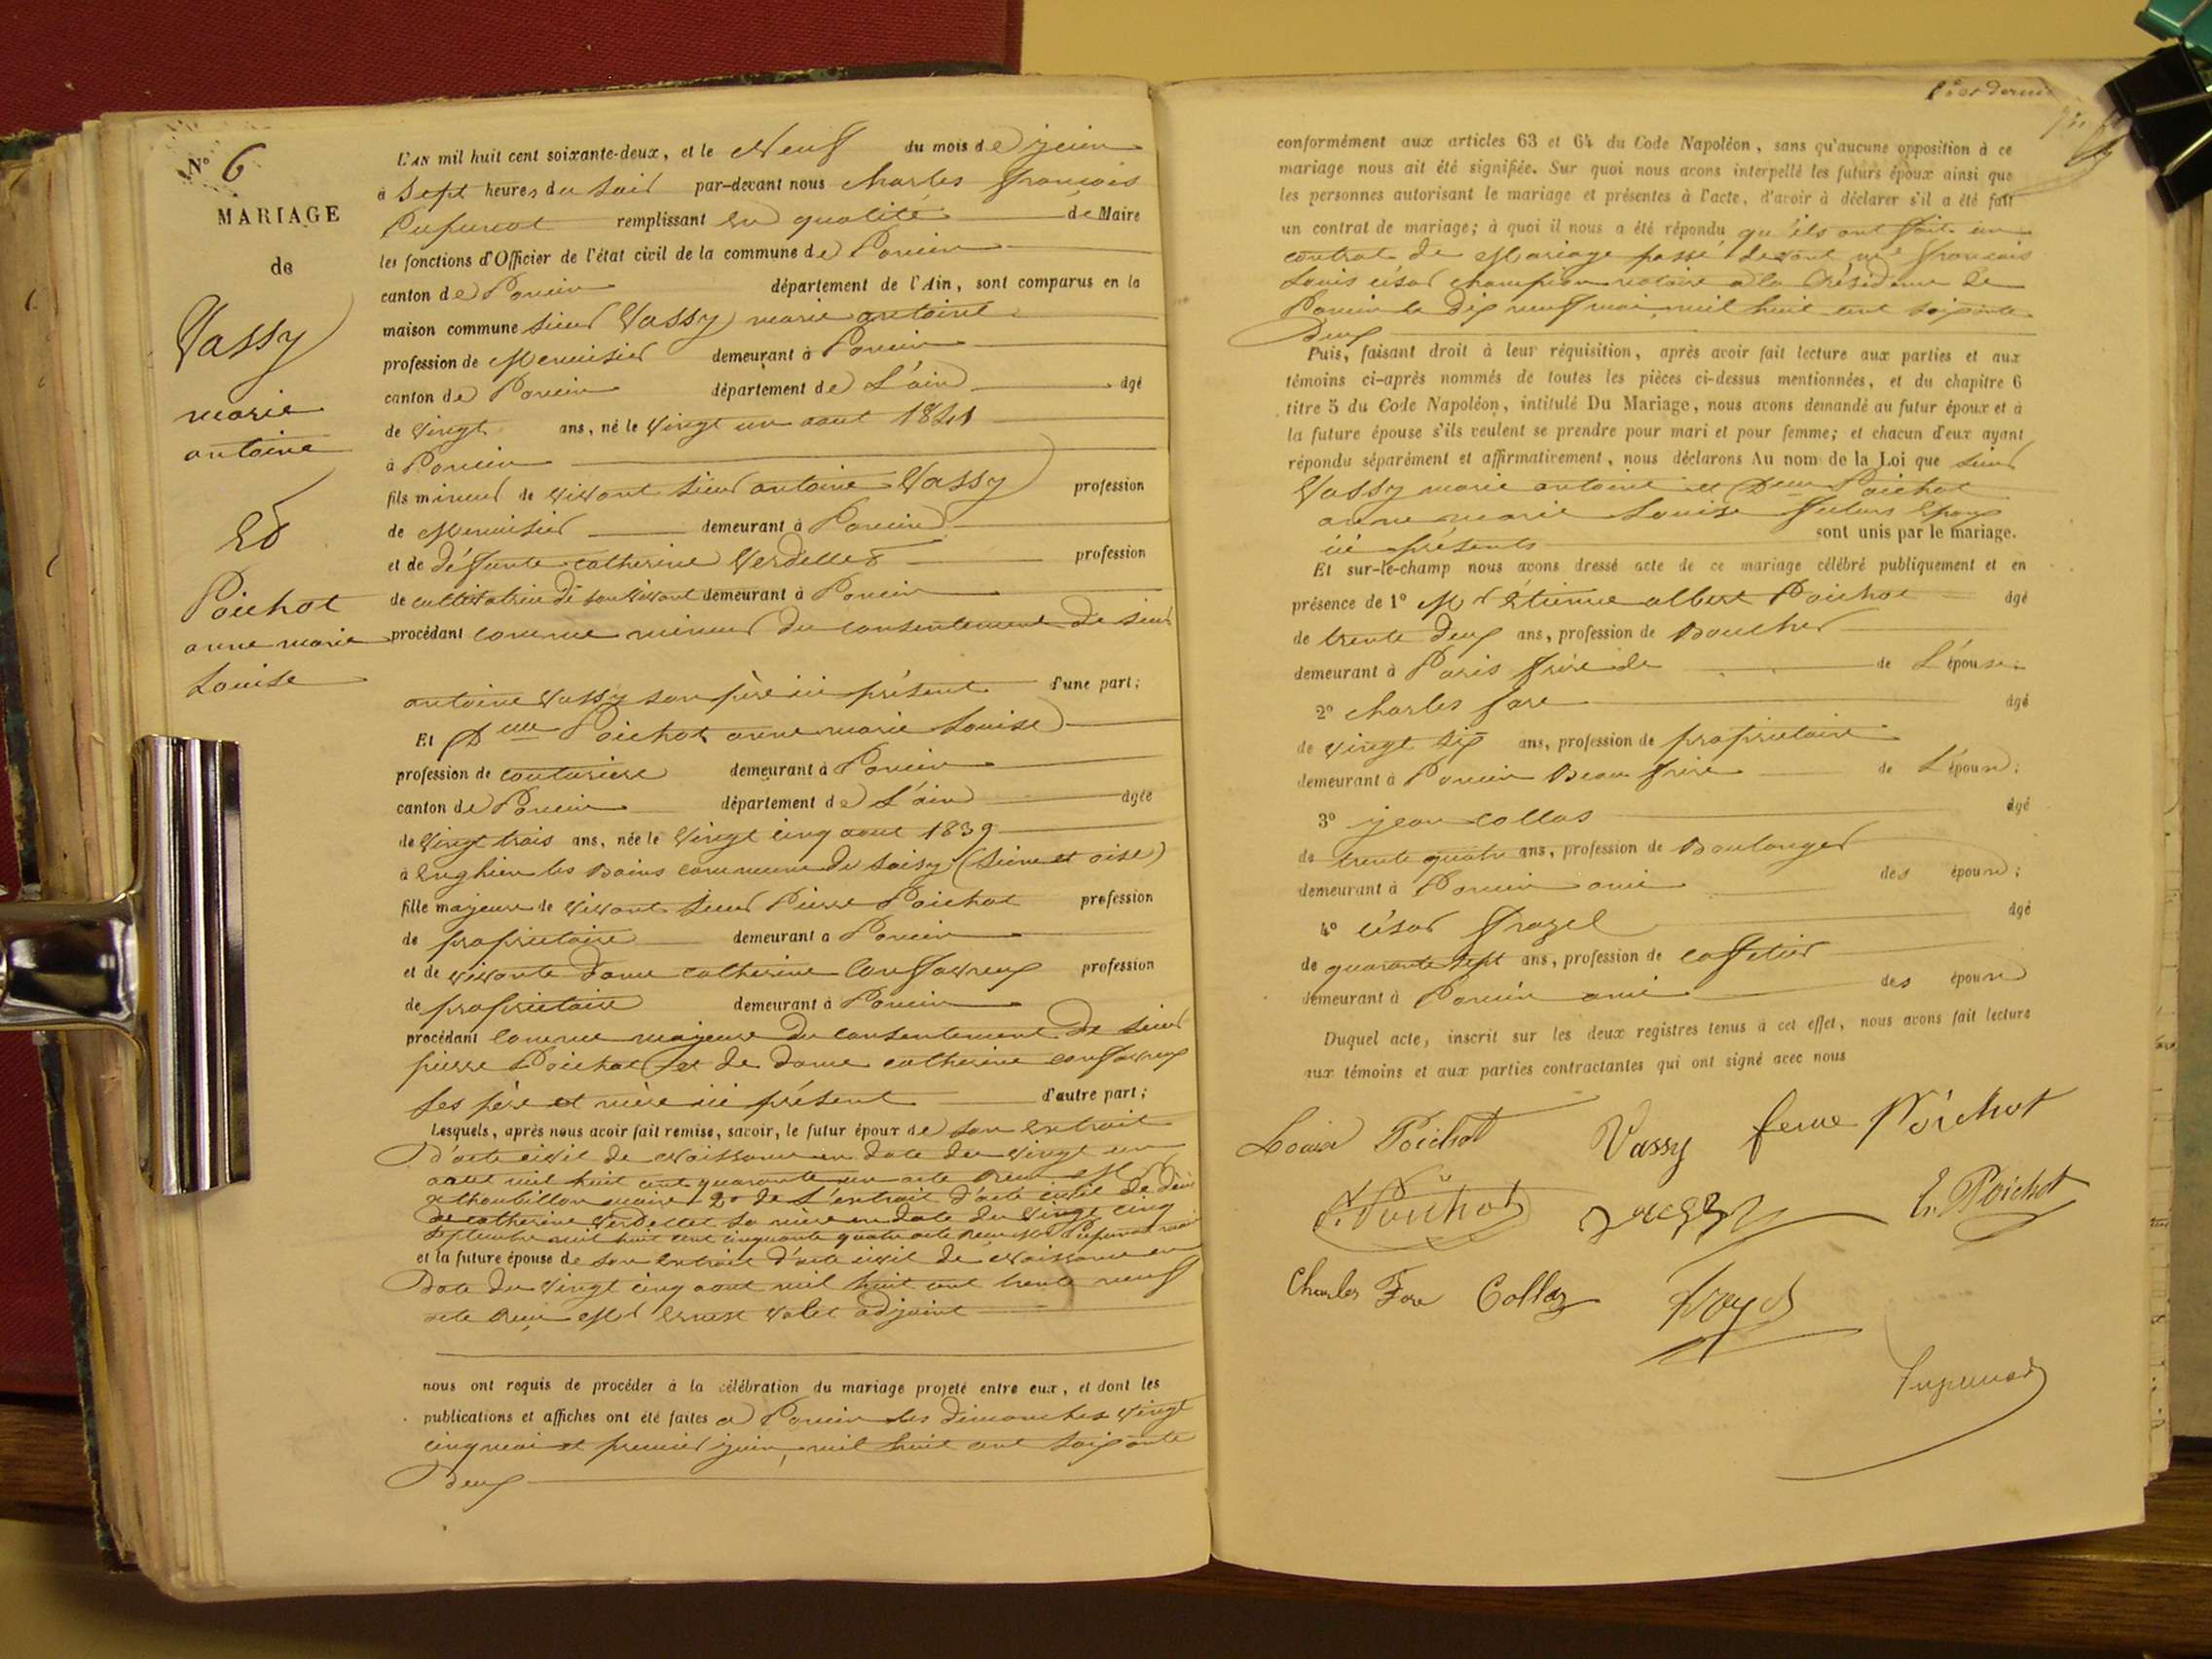 N° 6
MARIAGE
de
Vassy
marie
antoine
Et
Poichot
anne marie
Louise
L'AN mil huit cent soixante-deux, et le Neuf du mois de juin
à Sept heures du Soir par-devant nous Charles François
Pupunat remplissant en qualité de Maire
les fonctions d'Officier de l'état civil de la commune de Poncin
canton de Poncin département de l'Ain, sont comparus en la
maison commune sieur Vassy marie antoine
profession de Menuisier demeurant à Poncin
canton de Poncin département de L'ain âgé
de vingt ans, né le vingt un aout 1841
à Poncin
fils mineur de vivant sieur antoine Vassy profession
de Menuisier demeurant à Poncin
et de défunte catherine Verdellet profession
de cultivatrice de son vivant demeurant à Poncin
procédant comme mineur du consentement de sieur
antoine Vassy son père ici présent d'une part;
Et Delle Poichot anne marie Louise
profession de couturiere demeurant à Poncin
canton de Poncin département de L'ain âgée
de vingt trois ans, née le vingt cinq aout 1839
à Enghien les Bains commune de Soisy (Seine et oise)
fille majeure de vivant sieur Pierre Poichot profession
de propriétaire demeurant à Poncin
et de vivante dame catherine profession
de propriétaire demeurant à Poncin
procédant comme majeure du consentement de sieur
pierre Poichot et de dame catherine
ses père et mère ici présent d'autre part;
Lesquels, après nous avoir fait remise, savoir, le futur époux de son extrait
D'acte civil de Naissance en date du vingt un
aout mil huit cent quarante un acte reçu Mr
maire 2° de L'extrait d'acte civil de décès
de catherine Verdellet sa mère en date du vingt cinq
septembre mil huit cent cinquante quatre acte reçu Mr Pupunat maire
et la future épouse de son extrait d'acte civil de Naissance en
Date du vingt cinq aout mil huit cent trente neuf
acte reçu Mr Ernest Valet adjoint
nous ont requis de procéder à la célébration du mariage projeté entre eux, et dont les
publications et affiches ont été faites à Poncin les dimanches vingt
cinq mai et premier juin mil huit cent soixante
Deux
conformément aux articles 63 et 64 du Code Napoléon, sans qu'aucune opposition à ce
mariage nous ait été signifiée. Sur quoi nous avons interpellé les futurs époux ainsi que
les personnes autorisant le mariage et présentes à l'acte, d'avoir à déclarer s'il a été fait
un contrat de mariage; à quoi il nous a été répondu qu'ils ont fait un
contrat de Mariage passé devant me françois
Louis césar champion notaire à la Résidence de
Poncin le dix neuf mai mil huit cent soixante
Deux
Puis, faisant droit à leur réquisition, après avoir fait lecture aux parties et aux
témoins ci-après nommés de toutes les pièces ci-dessus mentionnées, et du chapitre 6
titre 5 du Code Napoléon, intitulé Du Mariage, nous avons demandé au futur époux et à
la future épouse s'ils veulent se prendre pour mari et pour femme; et chacun d'eux ayant
répondu séparément et affirmativement, nous déclarons Au nom de la Loi que sieur
Vassy marie antoine et Delle Poichot
anne marie Louise futurs Epoux
ici présents sont unis par le mariage.
Et sur-le-champ nous avons dressé acte de ce mariage célébré publiquement et en
présence de 1° Mr Etienne albert Poichot âgé
de trente deux ans, profession de Boucher
demeurant à Paris frère de de L'épouse.
2° charles fore âgé
de vingt six ans, profession de propriétaire
demeurant à Poncin Beau frère de L'épouse;
3° jean collas âgé
de trente quatre ans, profession de Boulanger
demeurant à Poncin ami des épouse;
4° césar âgé
de quarante sept ans, profession de caffetier
demeurant à Poncin ami des épouse
Duquel acte, inscrit sur les deux registres tenus à cet effet, nous avons fait lecture
aux témoins et aux parties contractantes qui ont signé avec nous
Louise Poichot Vassy feme Poichot
P. Poichot E. Poichot
Charles Fore Collas
Pupunat